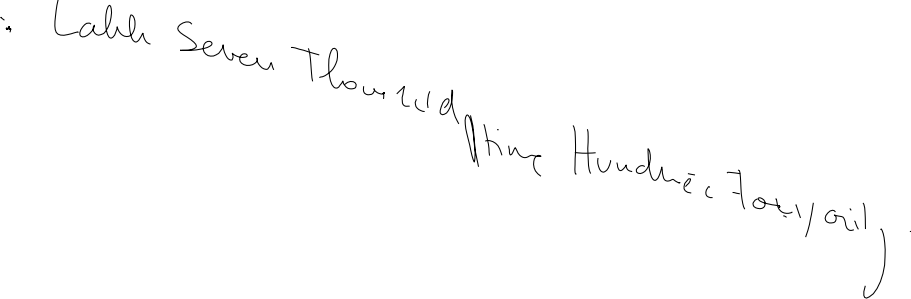 Lakh Seven Thousand Nine Hundred Forty only